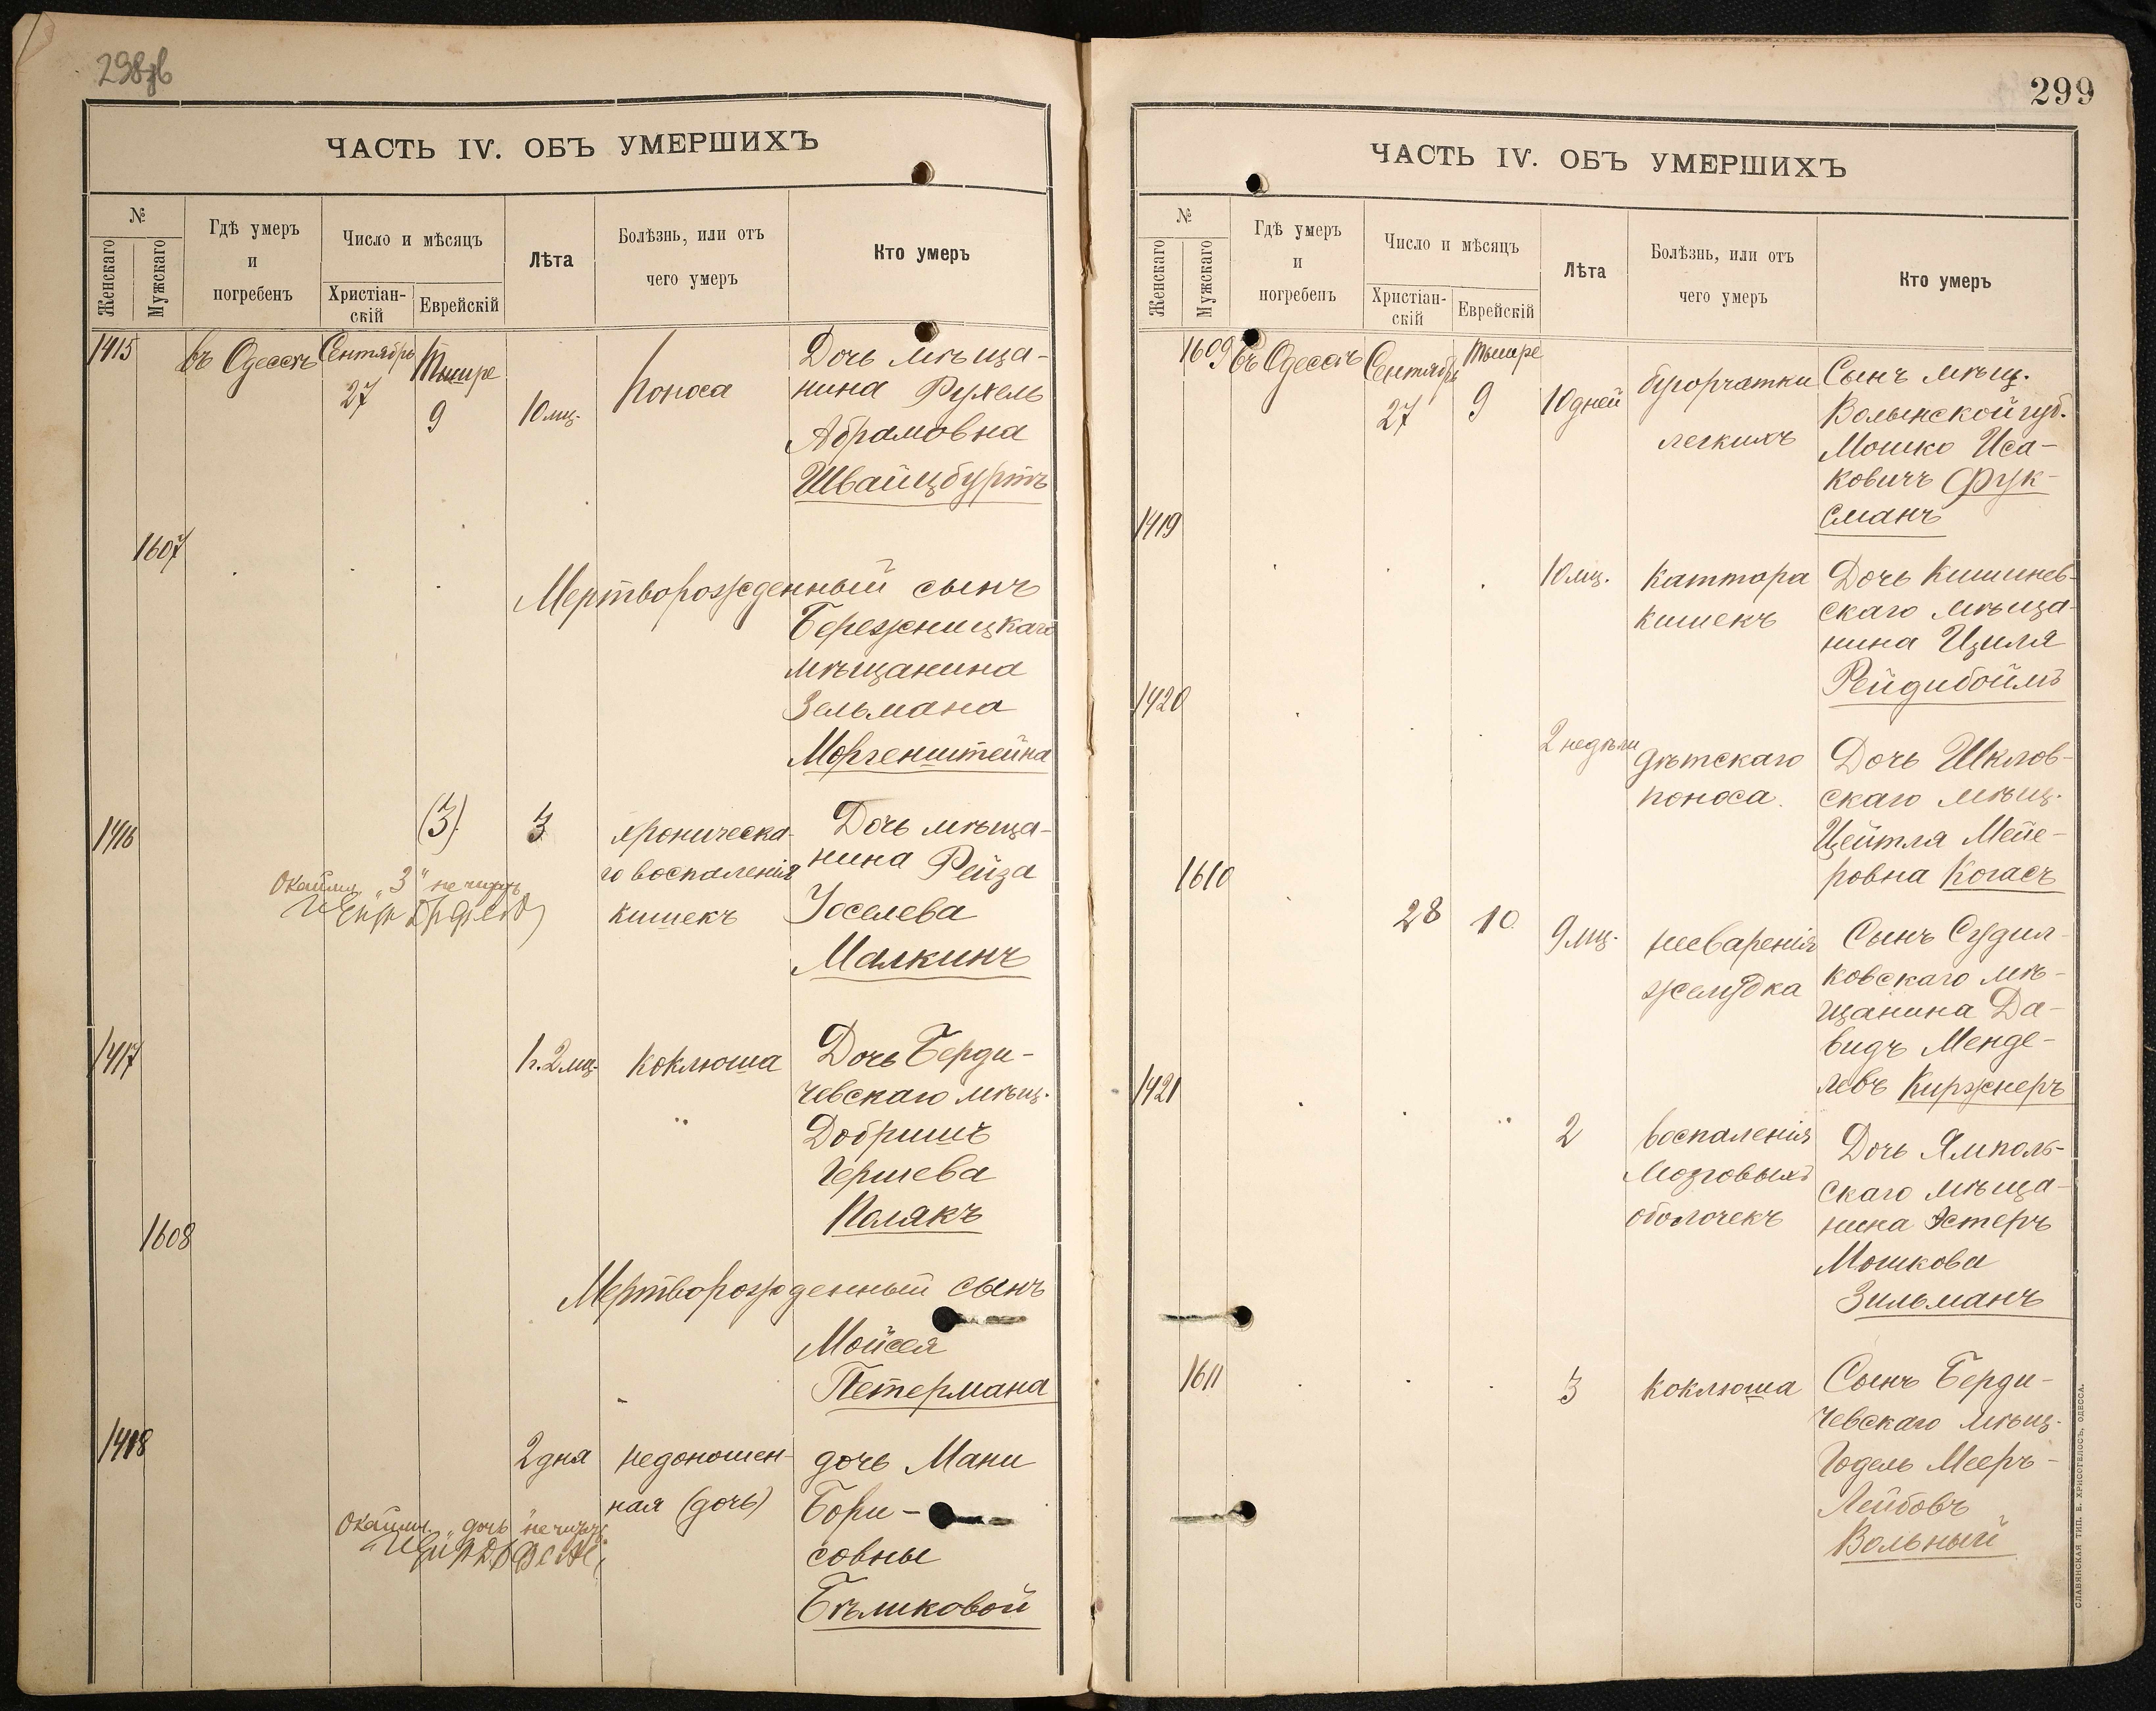 298
ЧАСТЬ IV. ОБЪ УМЕРШИХЪ
№
Женскаго
Мужскаго
Гдѣ умеръ
и
погребенъ
Число и мѣсяцъ
Христіан-
скій
Еврейскій
Лѣта
Болѣзнь, или отъ
чего умеръ
Кто умеръ
1415
въ Одессѣ
Сентябрь
27
Тышре
9
10 мц.
поноса
Дочь мѣща-
нина Рухель
Абрамовна
Швайцбуртъ
1607
Мертворожденный сынъ
Бережницкаго
мѣщанина
Зельмана
Моргенштейна
1416
(3).
3
хроническа-
го воспаленія
кишекъ
Дочь мѣща-
нина Рейза
Іоселева
Малкинъ
Окаймл. „3“ не читать
1417
1 г. 2 мц.
коклюша
Дочь Берди-
чевскаго мѣщ.
Добришъ
Гершева
Полякъ
1608
Мертворожденный сынъ
Мойсея
Петермана
1418
2 дня
недоношен-
ная (дочь)
дочь Мани
Бори-
совны
Бѣликовой
Окаймл. „дочь“ не читать
299
ЧАСТЬ IV. ОБЪ УМЕРШИХЪ
№
Женскаго
Мужскаго
Гдѣ умеръ
и
погребенъ
Число и мѣсяцъ
Христіан-
скій
Еврейскій
Лѣта
Болѣзнь, или отъ
чего умеръ
Кто умеръ
1609
въ Одессѣ
Сентябрь
27
Тышре
9
10 дней
бугорчатки
легкихъ
Сынъ мѣщ.
Волынской губ.
Мошко Иса-
ковичъ Фук-
сманъ
1419
10 мц.
каттора
кишекъ
Дочь Кишинев-
скаго мѣща-
нина Циля
Рейдибоймъ
1420
2 недѣли
дѣтскаго
поноса.
Дочь Шклов-
скаго мѣщ.
Цейтля Мейе-
ровна Когасъ
1610
28
10
9 мц.
несваренія
желудка
Сынъ Судил-
ковскаго мѣ-
щанина Да-
видъ Менде-
левъ Киржнеръ
1421
2
воспаленія
Мозговыхъ
оболочекъ
Дочь Ямполь-
скаго мѣща-
нина Эстеръ
Мошкова
Зильманъ
1611
3
коклюша
Сынъ Берди-
чевскаго мѣщ.
Годель Мееръ-
Лейбовъ
Вольный
СЛАВЯНСКАЯ ТИП. Е. ХРИСОГЕЛОСЪ, ОДЕССА.